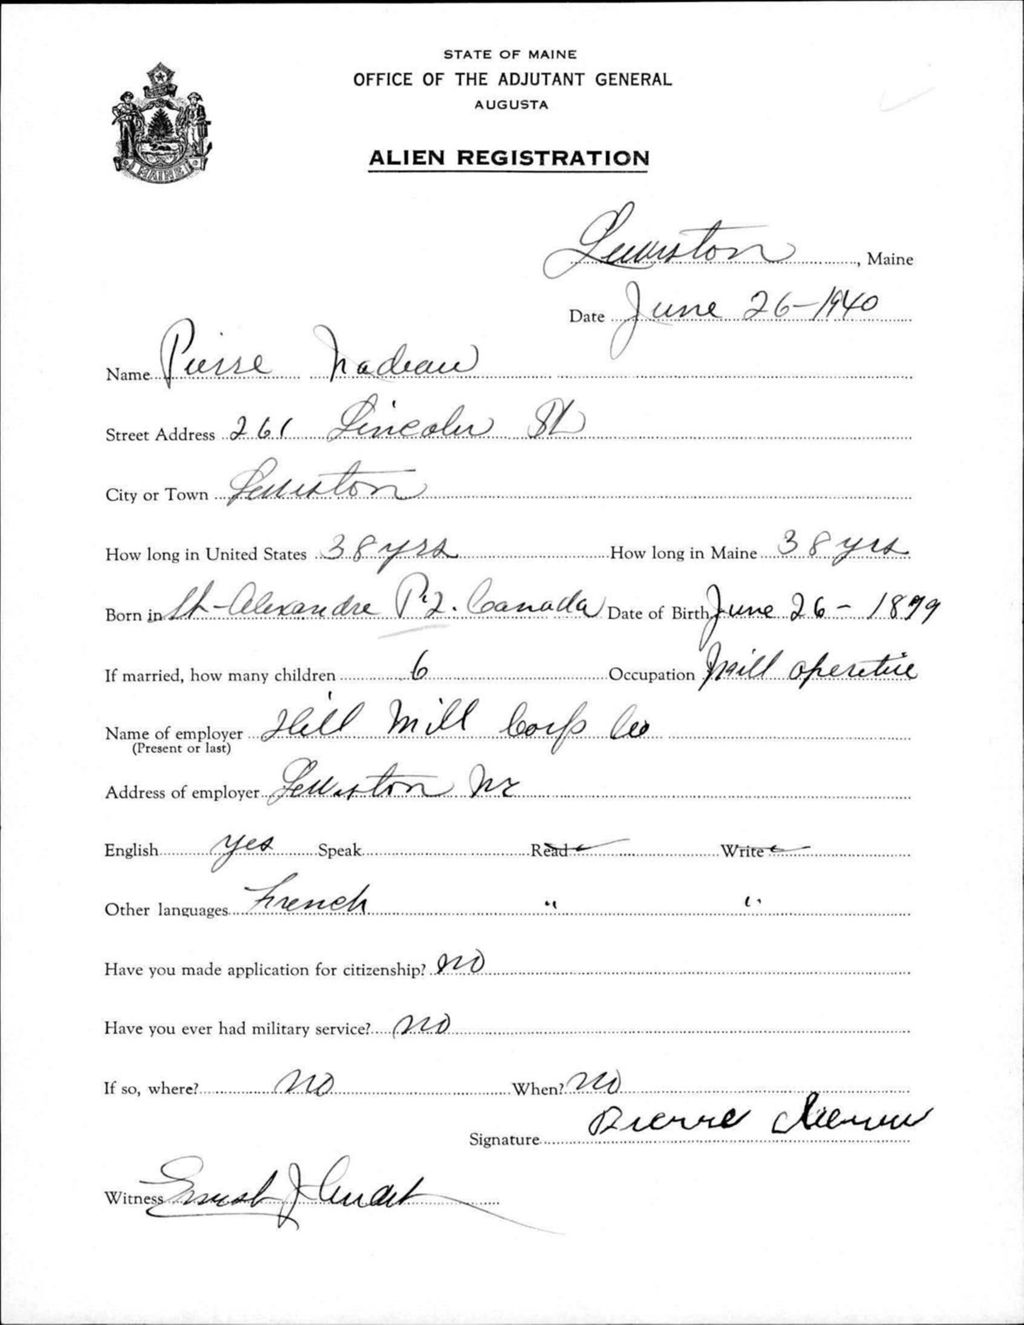 STATE OF MAINE
OFFICE OF THE ADJUTANT GENERAL
AUGUSTA
ALIEN REGISTRATION
MAINE
Lewiston, Maine
Date June 26-1940
Name Pierre Nadeau
Street Address 261 Lincoln St
City or Town Lewiston
How long in United States 38 yrs How long in Maine 38 yrs
Born in St-Alexandre P.Q. Canada Date of Birth June 26 - 1899
If married, how many children 6 Occupation Mill operative
Name of employer Hill Mill Corp Co
(Present or last)
Address of employer Lewiston Me
English yes Speak Read Write
Other languages French " "
Have you made application for citizenship? no
Have you ever had military service? no
If so, where? no When? no
Signature Pierre
Witness Ernest J